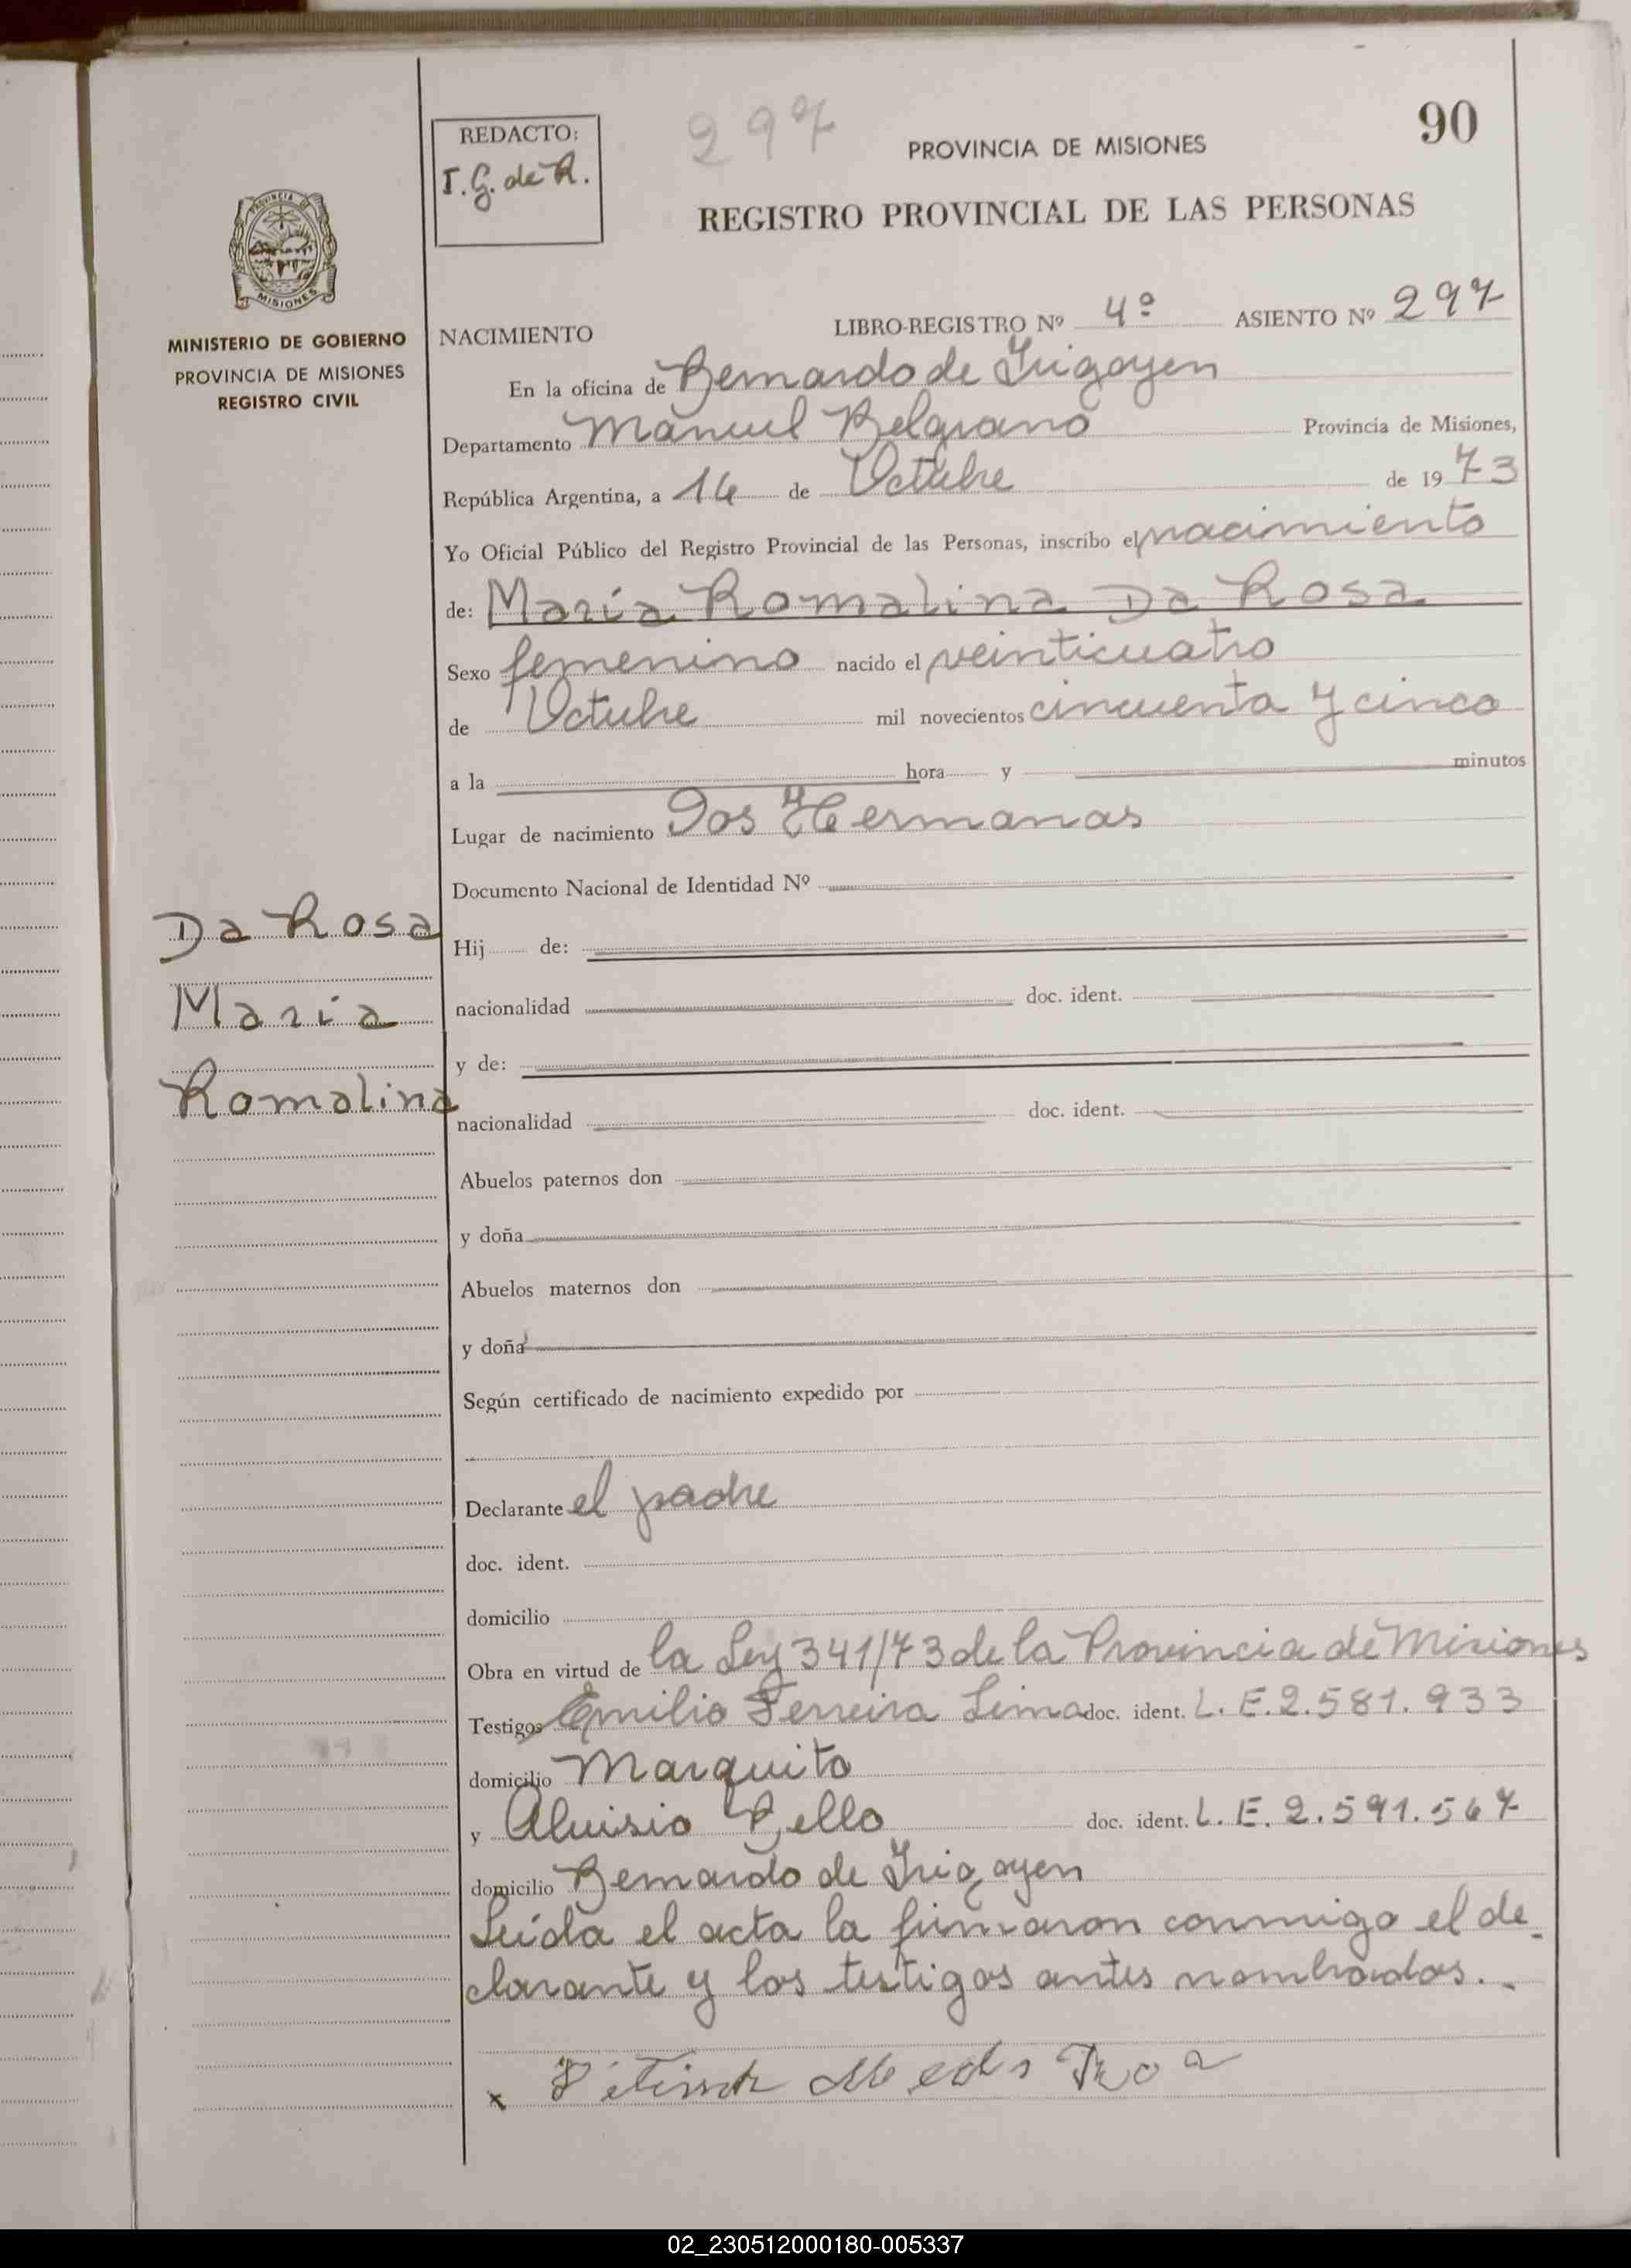 90
REDACTO:
I. G. de R.
297
PROVINCIA DE MISIONES
REGISTRO PROVINCIAL DE LAS PERSONAS
PROVINCIA DE
MISIONES
MINISTERIO DE GOBIERNO
PROVINCIA DE MISIONES
REGISTRO CIVIL
NACIMIENTO LIBRO-REGISTRO Nº 4º ASIENTO Nº 297
En la oficina de Bernardo de Irigoyen
Departamento Manuel Belgrano Provincia de Misiones,
República Argentina, a 14 de Octubre de 1973
Yo Oficial Público del Registro Provincial de las Personas, inscribo el nacimiento
de: María Romalina Da Rosa
Sexo femenino nacido el veinticuatro
de Octubre mil novecientos cincuenta y cinco
a la hora y minutos
Lugar de nacimiento Dos Hermanas
Documento Nacional de Identidad Nº
Da Rosa
María
Romalina
Hij de:
nacionalidad doc. ident.
y de:
nacionalidad doc. ident.
Abuelos paternos don
y doña
Abuelos maternos don
y doña
Según certificado de nacimiento expedido por
Declarante el padre
doc. ident.
domicilio
Obra en virtud de la Ley 341/73 de la Provincia de Misiones
Testigos Emilio Ferreira Lima doc. ident. L. E. 2.581.933
domicilio Marquito
y Aluisio Bello doc. ident. L. E. 2.591.567
domicilio Bernardo de Irigoyen
Leída el acta la firmaron conmigo el de-
clarante y los testigos antes nombrados.-
x
02_230512000180-005337